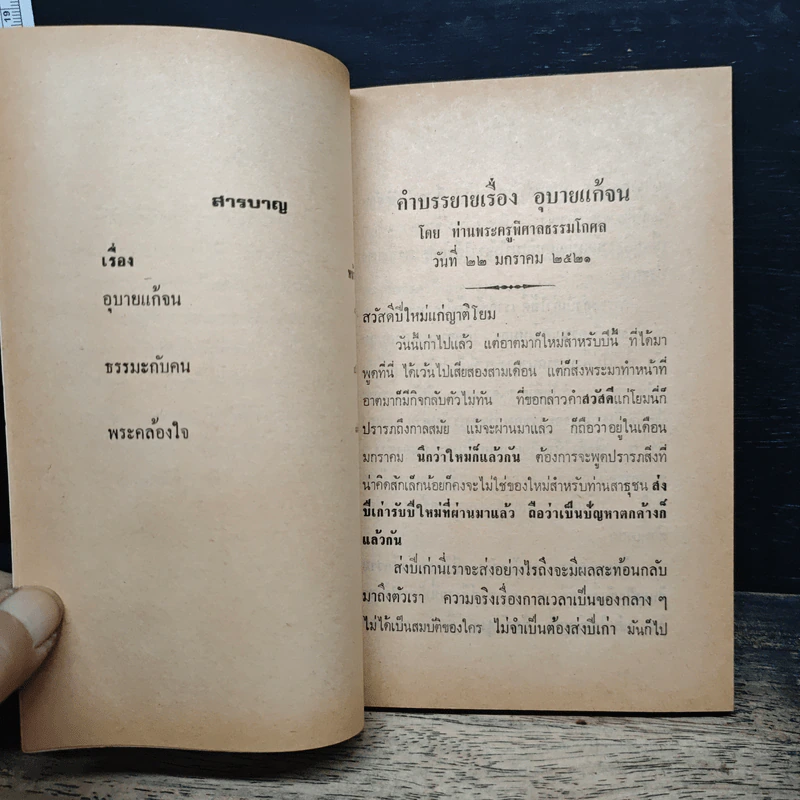 19
สารบาญ
เรื่อง
อุบายแก้จน
ธรรมะกับคน
พระคล้องใจ
คำบรรยายเรื่อง อุบายแก้จน
โดย ท่านพระครูพิศาลธรรมโกศล
วันที่ ๒๒ มกราคม ๒๕๒๑
สวัสดีปีใหม่แก่ญาติโยม
วันนี้เก่าไปแล้ว แต่อาตมาก็ใหม่สำหรับปีนี้ ที่ได้มา
พูดที่นี่ ได้เว้นไปเสียสองสามเดือน แต่ก็ส่งพระมาทำหน้าที่
อาตมาก็มีกิจกลับตัวไม่ทัน ที่ขอกล่าวคำสวัสดีแก่โยมนี่ก็
ปรารภถึงกาลสมัย แม้จะผ่านมาแล้ว ก็ถือว่าอยู่ในเดือน
มกราคม นึกว่าใหม่ก็แล้วกัน ต้องการจะพูดปรารภสิ่งที่
น่าคิดสักเล็กน้อยก็คงจะไม่ใช่ของใหม่สำหรับท่านสาธุชน ส่ง
ปีเก่ารับปีใหม่ที่ผ่านมาแล้ว ถือว่าเป็นปัญหาตกค้างก็
แล้วกัน
ส่งปีเก่านี่เราจะส่งอย่างไรถึงจะมีผลสะท้อนกลับ
มาถึงตัวเรา ความจริงเรื่องกาลเวลาเป็นของกลาง ๆ
ไม่ได้เป็นสมบัติของใคร ไม่จำเป็นต้องส่งปีเก่า มันก็ไป